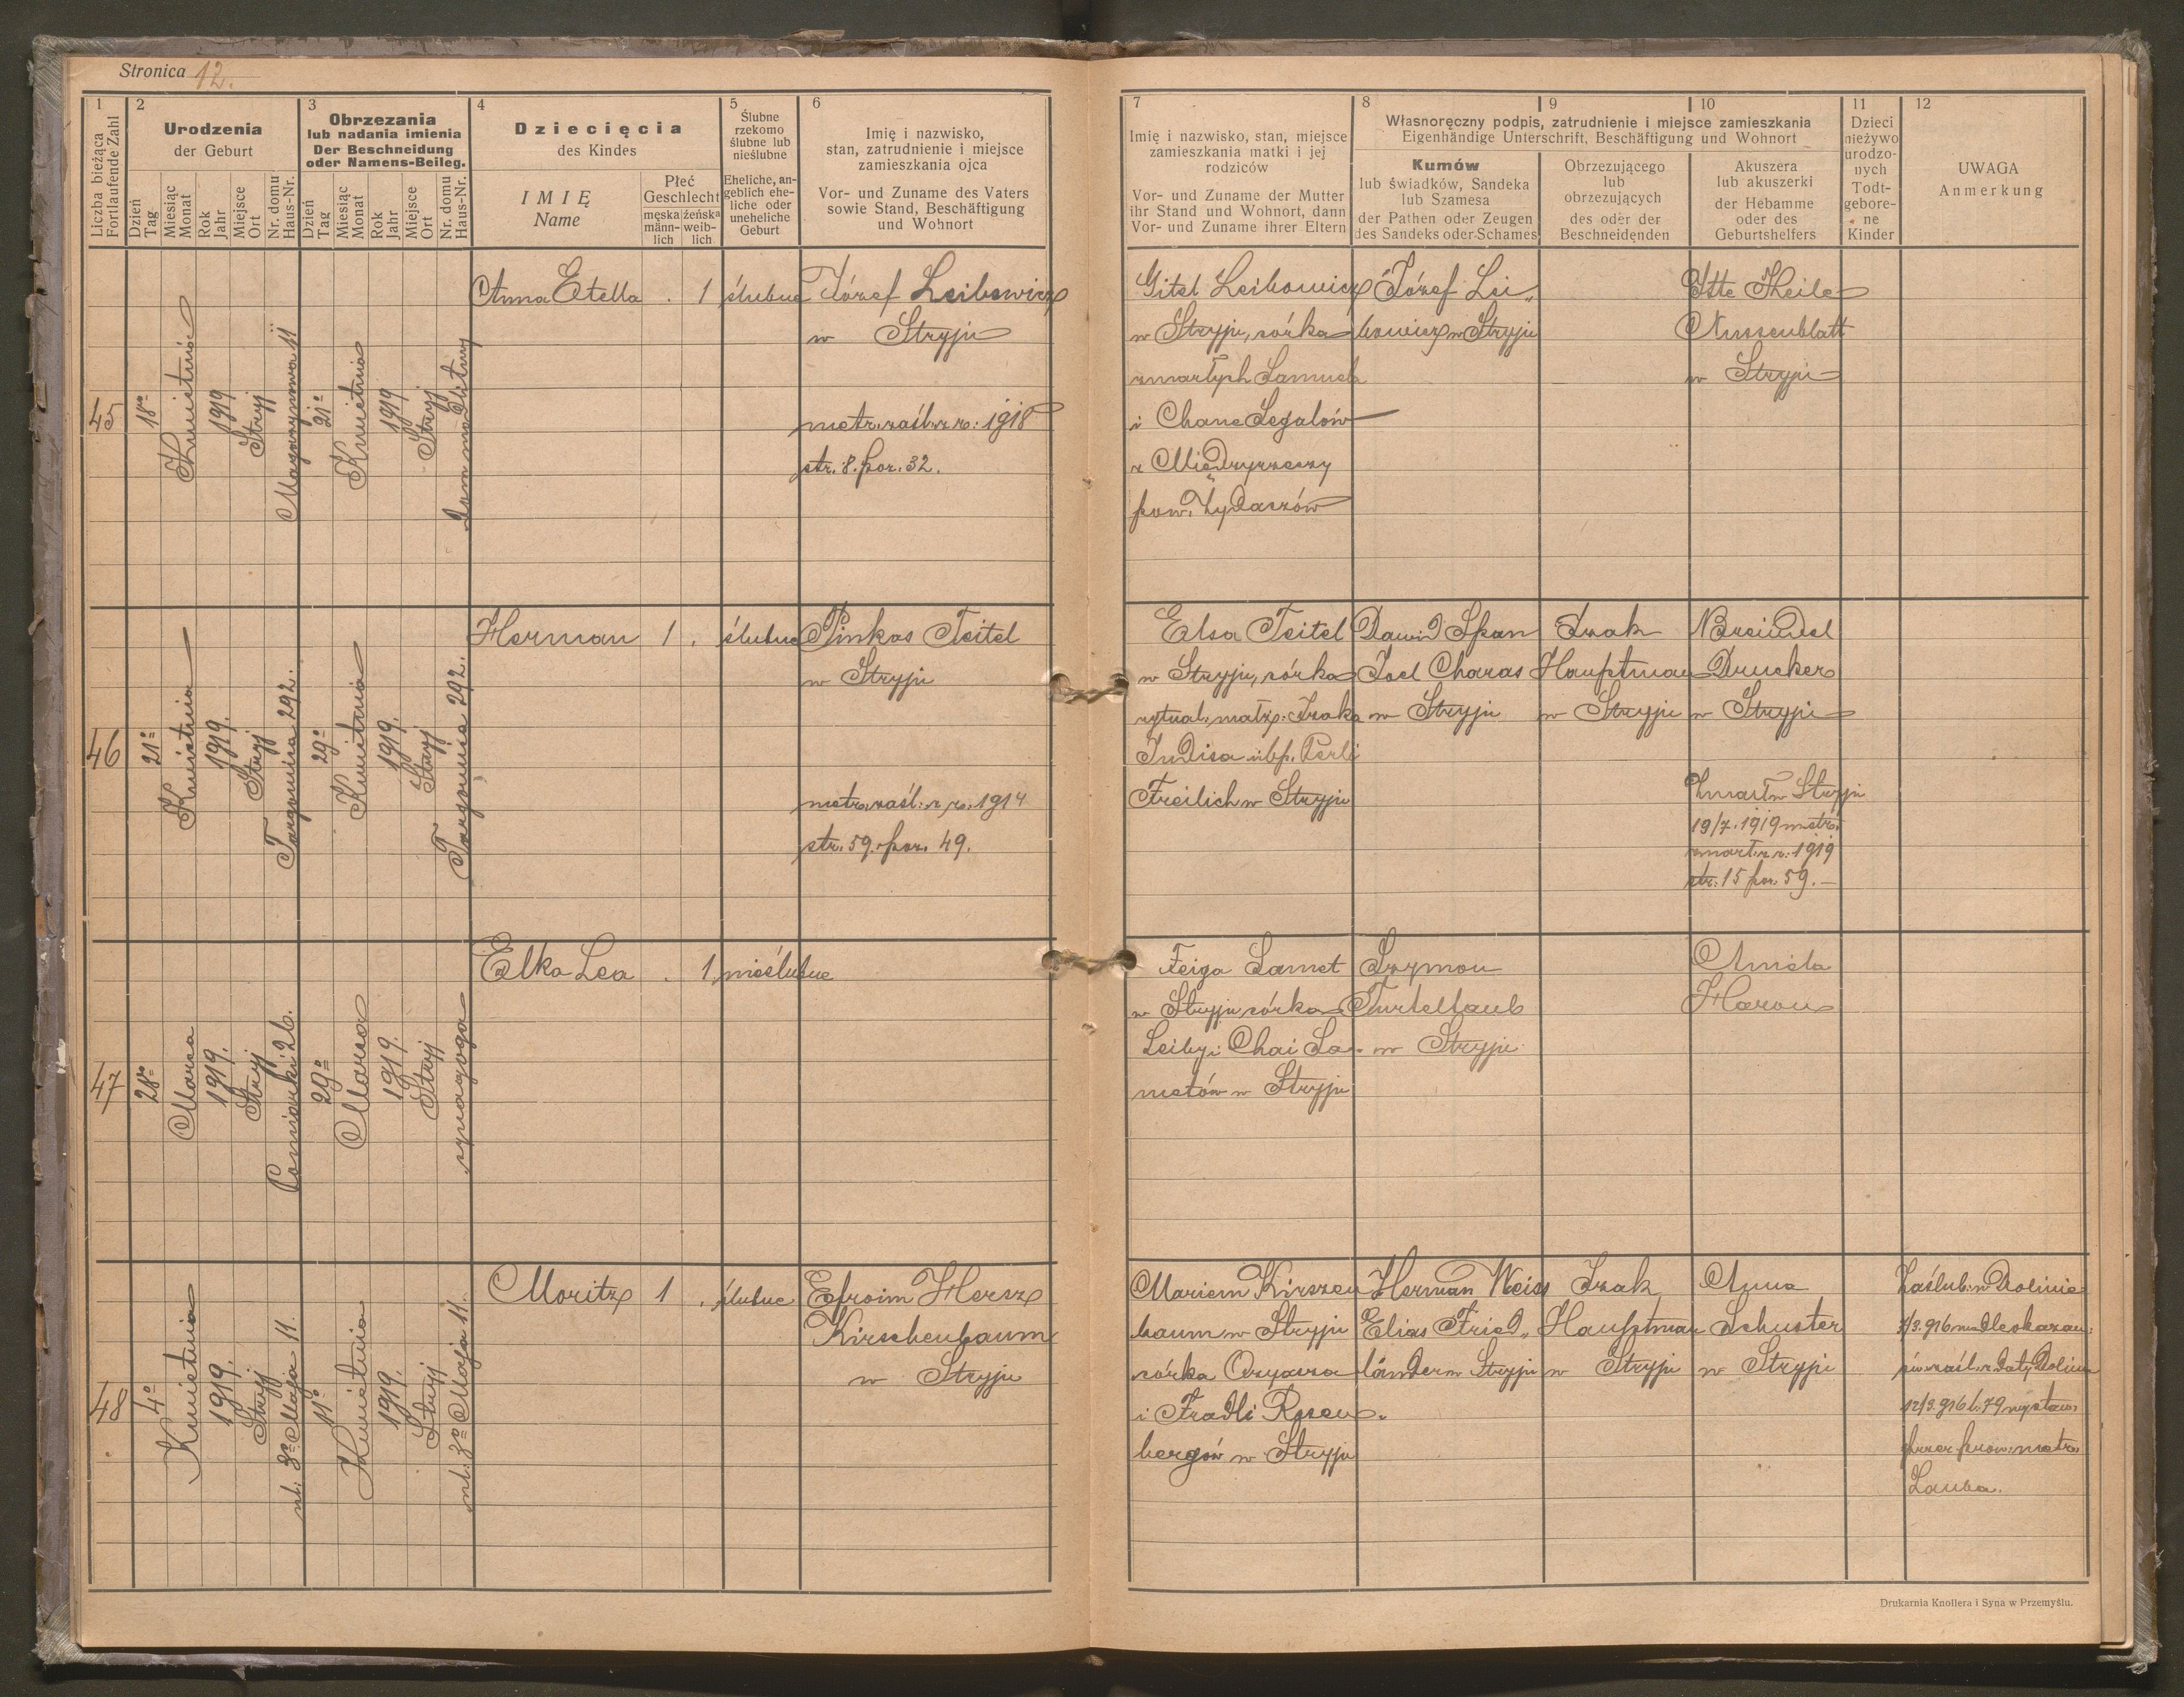 Stronica 12.
1
2
Urodzenia
der Geburt
3
Obrzezania
lub nadania imienia
Der Beschneidung
oder Namens-Beileg.
4
Dziecięcia
des Kindes
5
Ślubne
rzekomo
ślubne lub
nieślubne
Eheliche, an-
geblich ehe-
liche oder
uneheliche
Geburt
6
Imię i nazwisko,
stan, zatrudnienie i miejsce
zamieszkania ojca
Vor- und Zuname des Vaters
sowie Stand, Beschäftigung
und Wohnort
Liczba bieżąca
Fortlaufende Zahl
Dzień
Tag
Miesiąc
Monat
Rok
Jahr
Miejsce
Ort
Nr. domu
Haus-Nr.
Dzień
Tag
Miesiąc
Monat
Rok
Jahr
Miejsce
Ort
Nr. domu
Haus-Nr.
IMIĘ
Name
Płeć
Geschlecht
męska
männ-
lich
żeńska
weib-
lich
7
Imię i nazwisko, stan, miejsce
zamieszkania matki i jej
rodziców
Vor- und Zuname der Mutter
ihr Stand und Wohnort, dann
Vor- und Zuname ihrer Eltern
8
9
10
Własnoręczny podpis, zatrudnienie i miejsce zamieszkania
Eigenhändige Unterschrift, Beschäftigung und Wohnort
Kumów
lub świadków, Sandeka
lub Szamesa
der Pathen oder Zeugen
des Sandeks oder Schames
Obrzezującego
lub
obrzezujących
des oder der
Beschneidenden
Akuszera
lub akuszerki
der Hebamme
oder des
Geburtshelfers
11
Dzieci
nieżywo
urodzo-
nych
Todt-
gebore-
ne
Kinder
12
UWAGA
Anmerkung
45
18go
Kwietnia
1919
Stryj
Magazynowa 11
21o
Kwietnia
1919
Stryj
Dom modlitwy
Anna Etella . 1 ślubne
Józef Leibowicz
w Stryju
metr. zaśl. z r. 1918
str. 8. poz. 32.
Gitel Leibowicz
w Stryju, córka
zmarłych Samuela
i Chane Segalów
z Międzyrzeczy
pow. Żydaczów
Józef Lei„
bowicz w Stryju
Itte Theile
Nussenblatt
w Stryju
46
21o
Kwietnia
1919.
Stryj
Targowica 292.
29o
Kwietnia
1919.
Stryj
Targowica 292.
Herman 1 . ślubne
Pinkas Teitel
w Stryju
metr. zaśl. z r. 1914
str. 59. poz. 49.
Elsa Teitel
w Stryju, córka
rytual. małż. Izaka
Indisa i bp. Perli
Freilich w Stryju
Dawid Span
Joel Charas
w Stryju
Izak
Hauptman
w Stryju
Breindel
Drucker
w Stryju
Zmarł w Stryju
19/7. 1919 metr.
zmarł. z r. 1919
str. 15 poz. 59.—
47
28o
Marca
1919.
Stryj
Poniarki 26.
29o
Marca
1919.
Stryj
synagoga
Elka Lea . 1 nieślubne
Feiga Samet
w Stryju córka
Leiby i Chai Sa-
metów w Stryju
Szymon
Turteltaub
w Stryju
Amela
Haron
48
4o
Kwietnia
1919.
Stryj
ul. 3go Maja 11.
11o
Kwietnia
1919.
Stryj
ul. 3go Maja 11.
Moritz 1 . ślubne
Efroim Hersz
Kirschenbaum
w Stryju
Mariem Kirszen
baum w Stryju
córka Ozyasza
i Fradli Rosen-
bergów w Stryju
Herman Weiss
Elias Fried„
länder w Stryju
Izak
Hauptman
w Stryju
Anna
Schuster
w Stryju
Zaślub. w Dolinie
7/3. 916 według okazan.
św. zaśl. z daty Dolina
12/3. 916 l. 79 wystaw.
przez prow. metr.
Lauba.
Drukarnia Knollera i Syna w Przemyślu.